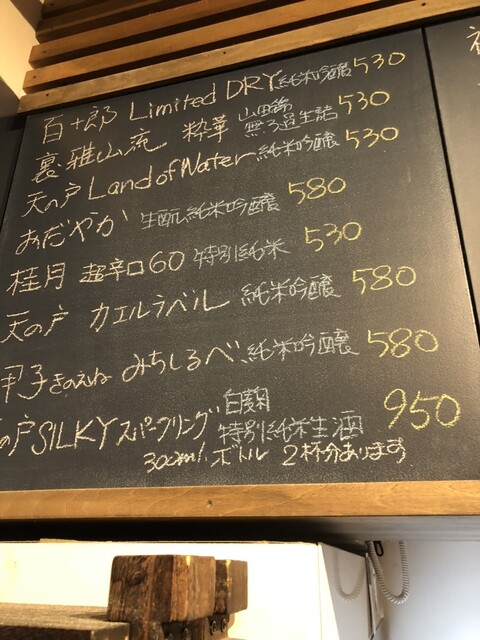 百十郎 Limited DRY 純米吟醸 530
裏・雅山流 粋華 山田錦 無ろ過生詰 530
天の戸 Land of Water 純米吟醸 530
おだやか 生酛純米吟醸 580
桂月 超辛口60 特別純米 530
天の戸 カエルラベル 純米吟醸 580
甲子きのえね みちしるべ 純米吟醸 580
の戸SILKYスパークリング 白麹 特別純米生酒 950
300ml ボトル 2杯分あります